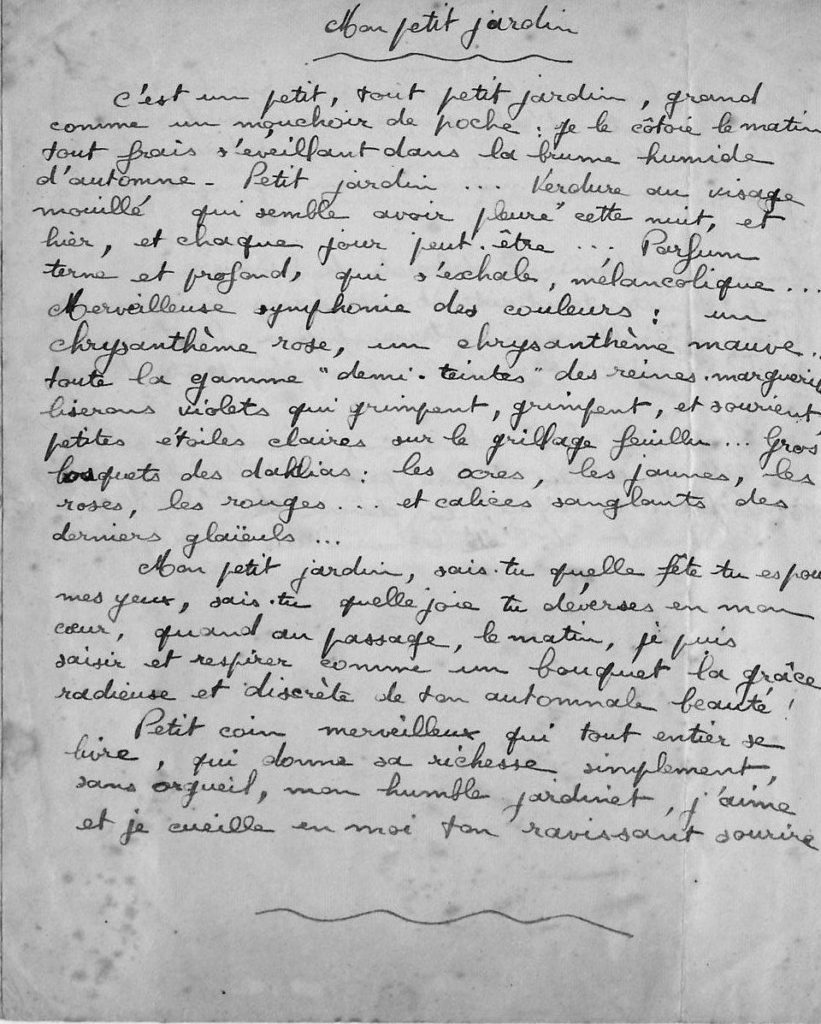 Mon petit jardin
C'est un petit, tout petit jardin, grand
comme un mouchoir de poche : je le côtoie le matin
tout frais s'éveillant dans la brume humide
d'automne - Petit jardin ... Verdure au visage
mouillé qui semble avoir pleuré cette nuit, et
hier, et chaque jour peut-être ... Parfum
terne et profond, qui s'exhale, mélancolique ...
Merveilleuse symphonie des couleurs : un
chrysanthème rose, un chrysanthème mauve ..
toute la gamme "demi-teintes" des reines-marguerit
liserons violets qui grimpent, grimpent, et sourient
petites étoiles claires sur le grillage feuillu ... Gros
bosquets des dahlias : les ocres, les jaunes, les
roses, les rouges ... et calices sanglants des
derniers glaïeuls ...
Mon petit jardin, sais-tu quelle fête tu es pou
mes yeux, sais-tu quelle joie tu déverses en mon
cœur, quand au passage, le matin, je puis
saisir et respirer comme un bouquet la grâce
radieuse et discrète de ton automnale beauté !
Petit coin merveilleux qui tout entier se
livre, qui donne sa richesse simplement,
sans orgueil, mon humble jardinet, j'aime
et je cueille en moi ton ravissant sourire